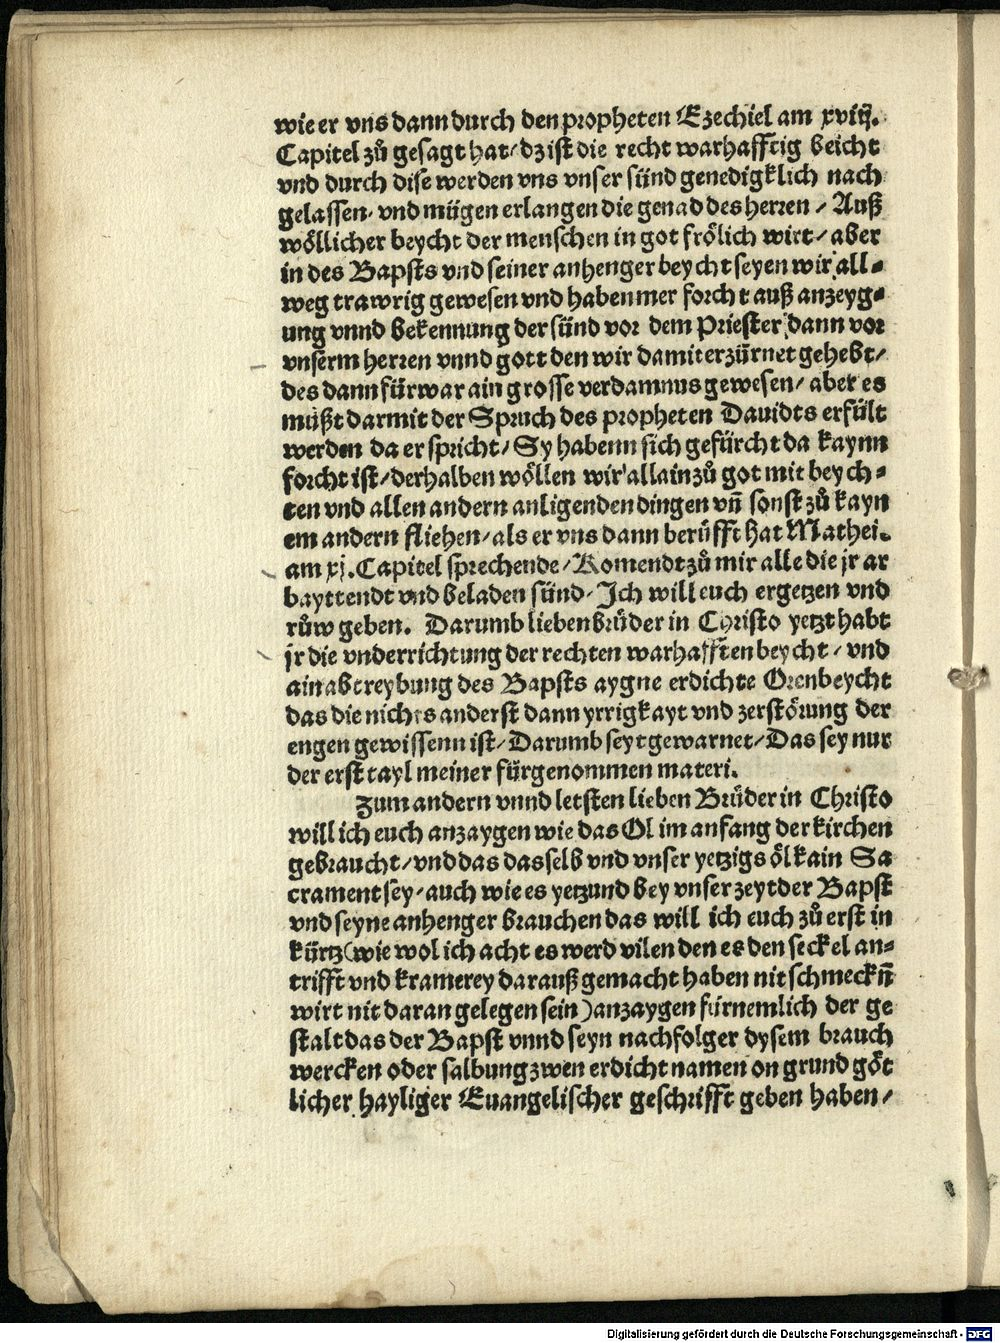 wie er vns dann durch den propheten Ezechiel am xviij.
Capitel zů gesagt hat/ dz ist die recht warhafftig beicht
vnd durch dise werden vns vnser sünd genedigklich nach
gelassen/ vnd mügen erlangen die genad des herren / Auß
wöllicher beycht der menschen in got frölich wirt/ aber
in des Bapsts vnd seiner anhenger beycht seyen wir all⸗
weg trawrig gewesen vnd haben mer forcht auß anzeyg⸗
ung vnnd bekennung der sünd vor dem Priester dann vor
vnserm herren vnnd gott den wir damit erzürnet gehebt/
des dann fürwar ain grosse verdamnus gewesen/ aber es
můßt darmit der Spruch des propheten Dauidts erfült
werden da er spricht/ Sy habenn sich gefürcht da kaynn
forcht ist/ derhalben wöllen wir allain zů got mit beych⸗
ten vnd allen andern anligenden dingen vñ sonst zů kayn
em andern fliehen/ als er vns dann berüfft hat Mathei.
am xj. Capitel sprechende/ Komendt zů mir alle die jr ar
bayttendt vnd beladen sünd/ Ich will euch ergetzen vnd
růw geben. Darumb lieben brüder in Christo yetzt habt
jr die vnderrichtung der rechten warhafften beycht / vnd
ain abtreybung des Bapsts aygne erdichte Orenbeycht
das die nichts anderst dann yrrigkayt vnd zerstörung der
engen gewissenn ist/ Darumb seyt gewarnet/ Das sey nur
der erst tayl meiner fürgenommen materi.
Zum andern vnnd letsten lieben Brüder in Christo
will ich euch anzaygen wie das Ol im anfang der kirchen
gebraucht/ vnd das dasselb vnd vnser yetzigs öl kain Sa
crament sey/ auch wie es yetzund bey vnser zeyt der Bapst
vnd seyne anhenger brauchen das will ich euch zů erst in
kürtz (wie wol ich acht es werd vilen den es den seckel an⸗
trifft vnd kramerey darauß gemacht haben nit schmeckñ
wirt nit daran gelegen sein) anzaygen fürnemlich der ge
stalt das der Bapst vnnd seyn nachfolger dysem brauch
wercken oder salbung zwen erdicht namen on grund göt
licher hayliger Euangelischer geschrifft geben haben/
Digitalisierung gefördert durch die Deutsche Forschungsgemeinschaft - DFG